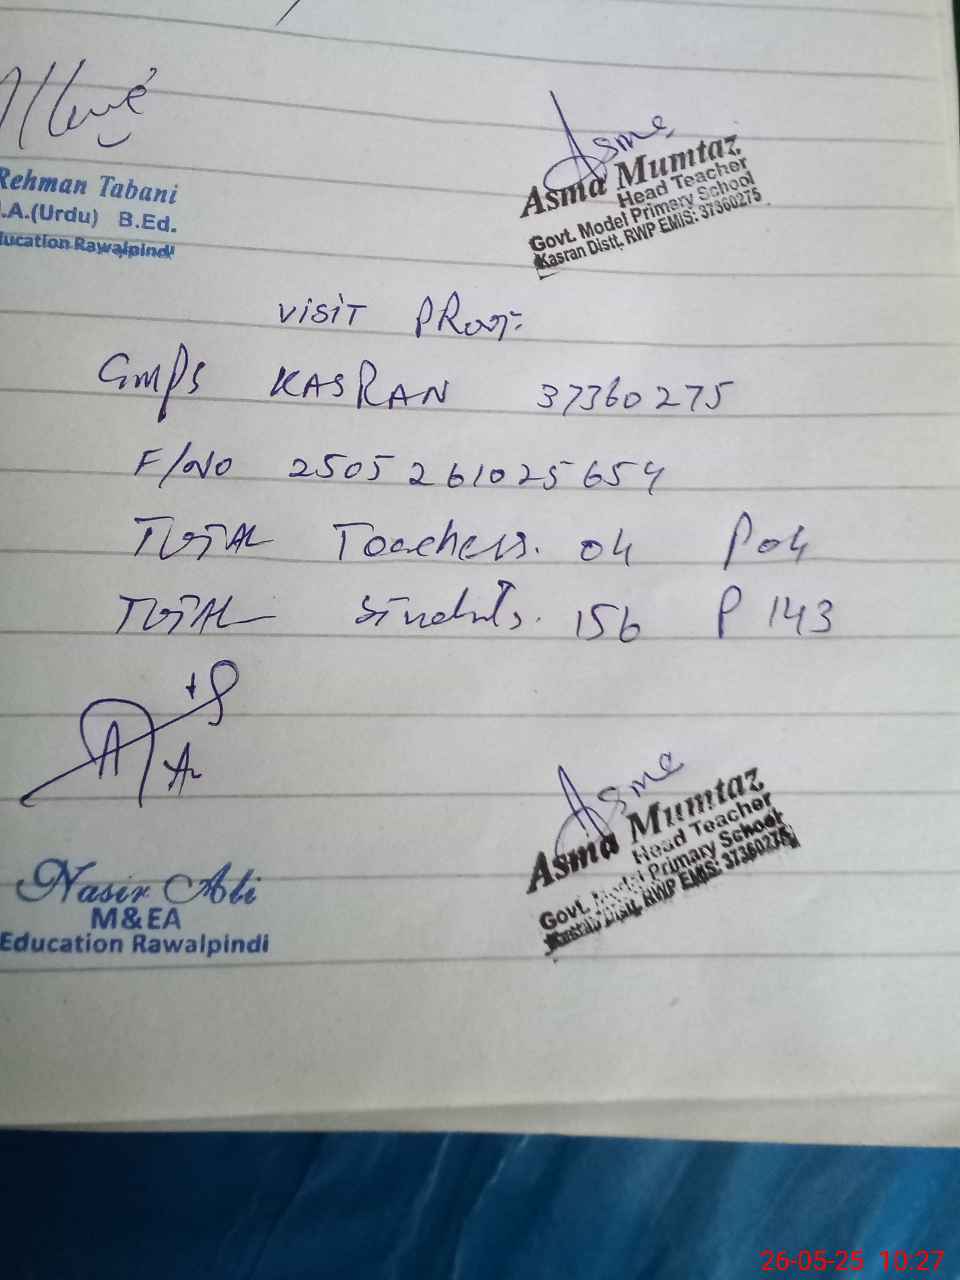 Rehman Tabani
.A.(Urdu) B.Ed.
ducation Rawalpindi
Asma
Asma Mumtaz
Head Teacher
Govt. Model Primary School
Kasran Distt. RWP EMIS: 37360275
VISIT PROOF
GMPS KASRAN 37360275
F/NO 2505261025654
TOTAL Teachers. 04 P 04
TOTAL Students. 156 P 143
Nasir Ali
M&EA
Education Rawalpindi
Asma
Asma Mumtaz
Head Teacher
Govt. Model Primary School
Distt. RWP EMIS: 37360275
26-05-25 10:27